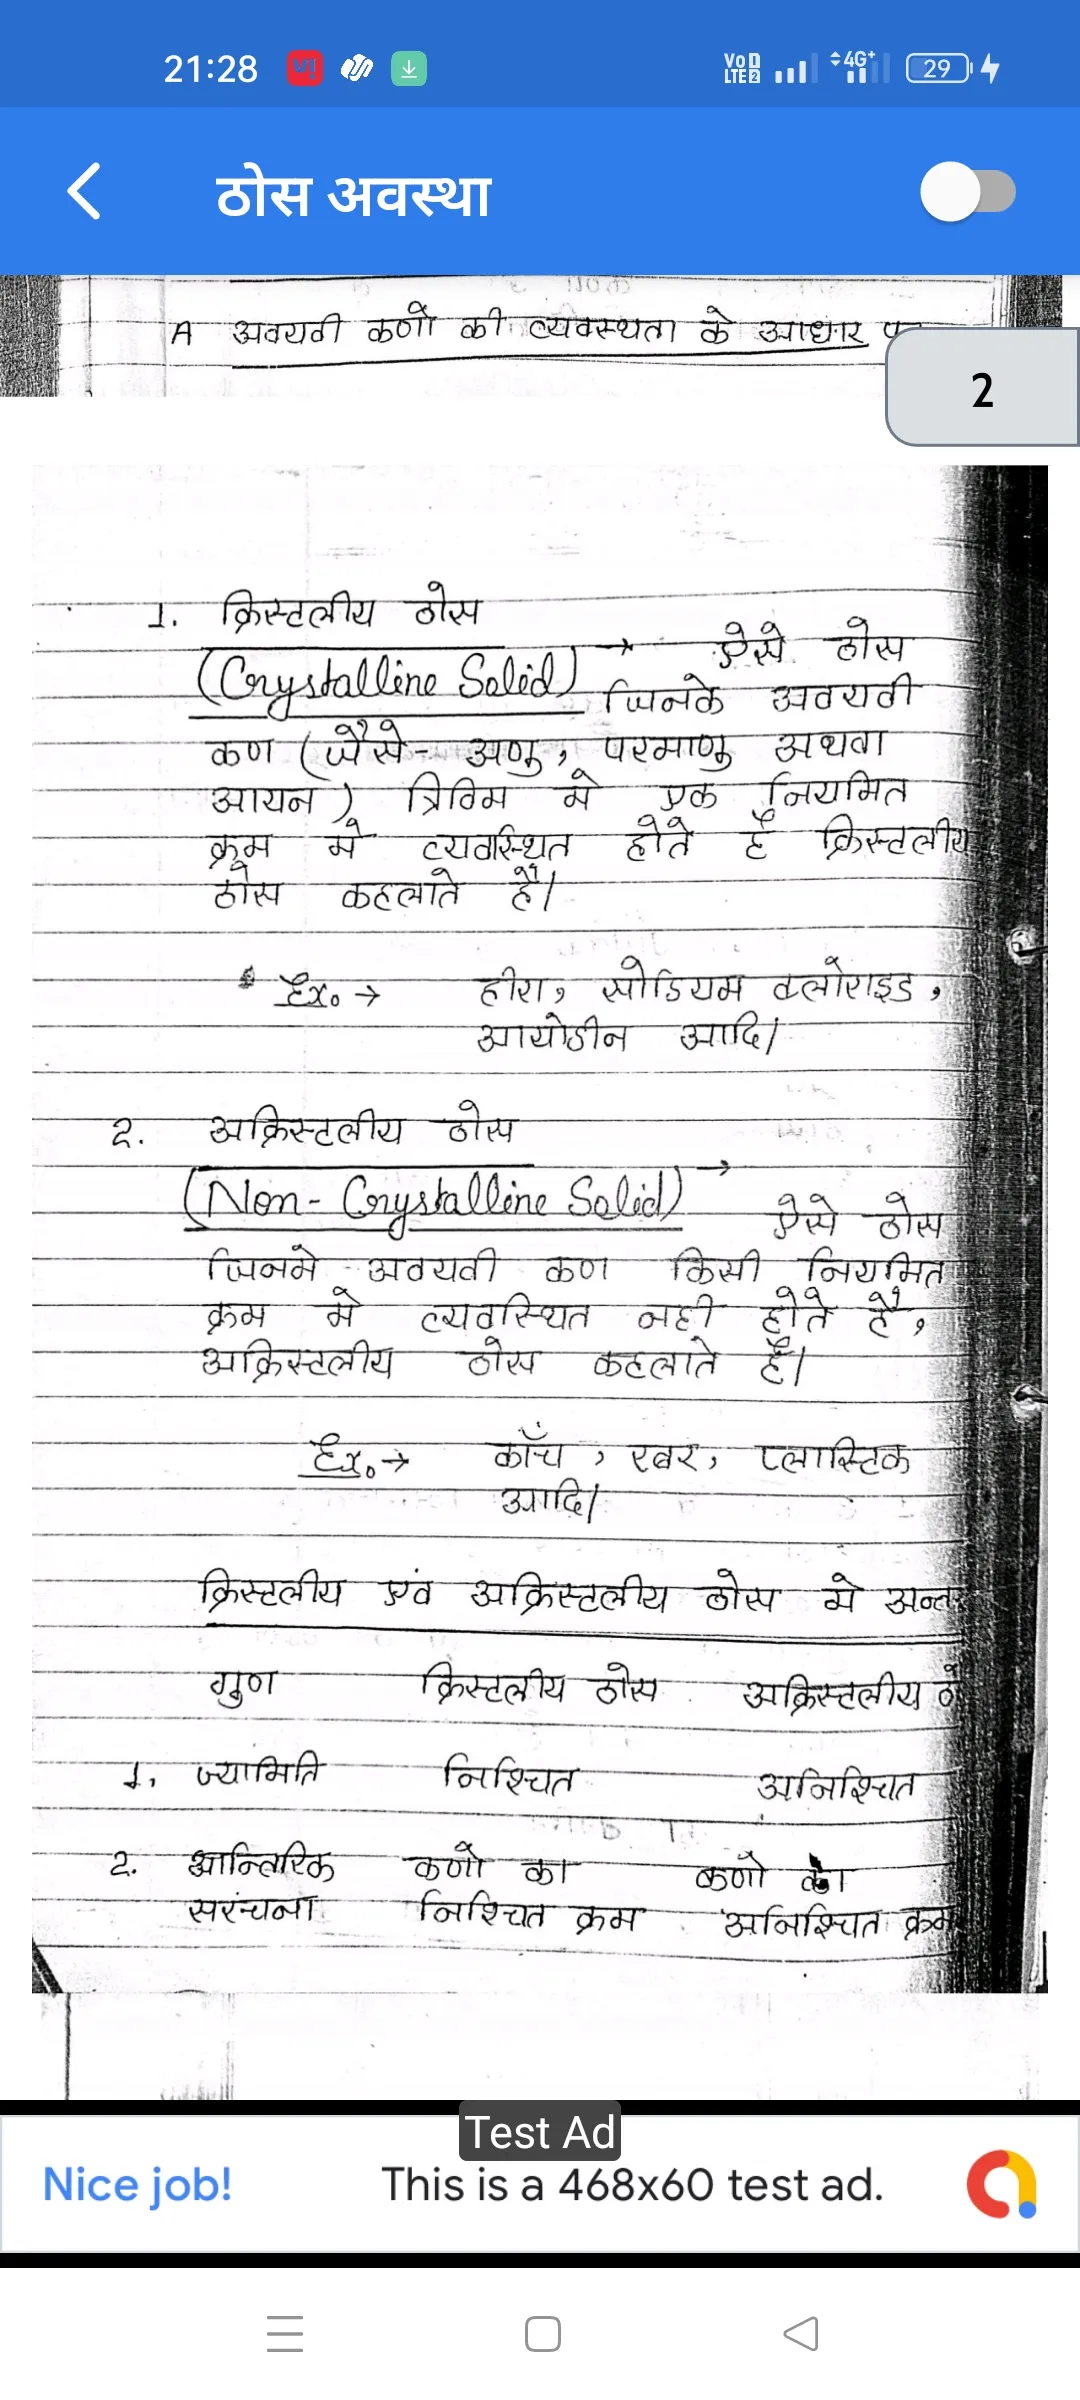 21:28
Vo LTE 1 2 4G+ 29
ठोस अवस्था
A अवयवी कणो की व्यवस्थता के आधार
2
1. क्रिस्टलीय ठोस
(Crystalline Solid) → ऐसे ठोस
जिनके अवयवी
कण (जैसे- अणु, परमाणु अथवा
आयन) त्रिविम मे एक नियमित
क्रम मे व्यवस्थित होते है क्रिस्टलीय
ठोस कहलाते है।
Ex. → हीरा, सोडियम क्लोराइड,
आयोडीन आदि।
2. अक्रिस्टलीय ठोस
(Non-Crystalline Solid) →
ऐसे ठोस
जिनमे अवयवी कण किसी नियमित
क्रम मे व्यवस्थित नही होते है,
अक्रिस्टलीय ठोस कहलाते है।
Ex. → काँच, रबर, प्लास्टिक
आदि।
क्रिस्टलीय एवं अक्रिस्टलीय ठोस मे
गुण क्रिस्टलीय ठोस अक्रिस्टलीय
1. ज्यामिति निश्चित अनिश्चित
2. आन्तिरिक कणो का कणो का
सरंचना निश्चित क्रम अनिश्चित क्रम
Test Ad
Nice job! This is a 468x60 test ad.